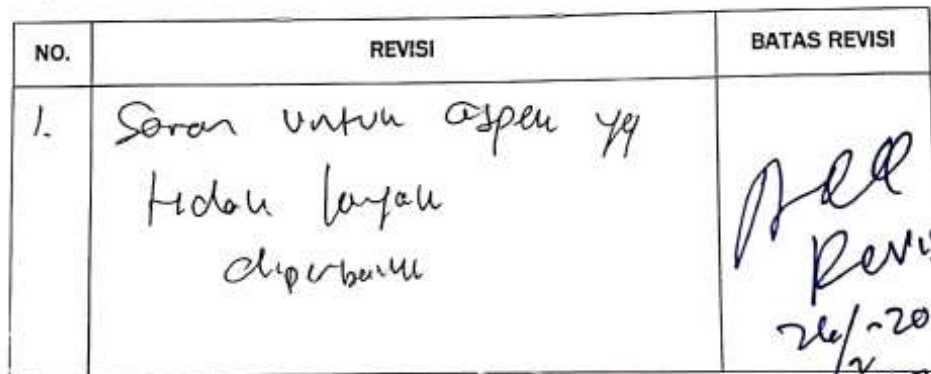 NO. REVISI BATAS REVISI
1. Saran untuk aspek yg
tidak layak
diperbaiki
Acc
Revis
26/-20
2